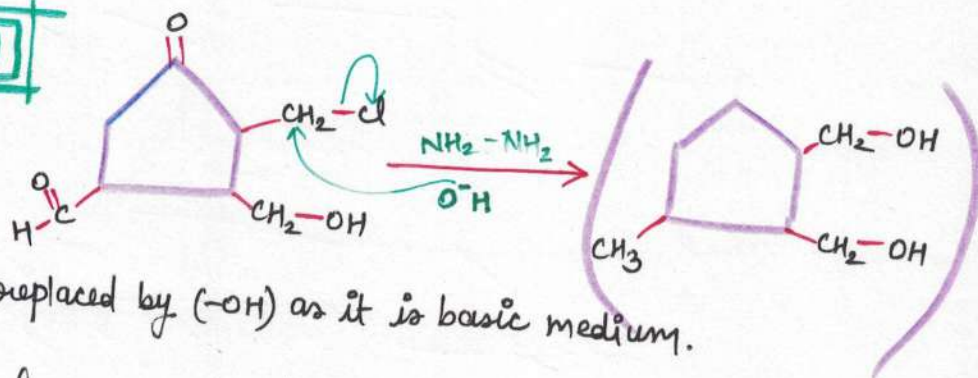 O
CH₂-Cl
NH₂-NH₂
O⁻H
O
H-C
CH₂-OH
CH₂-OH
CH₃
CH₂-OH
replaced by (-OH) as it is basic medium.